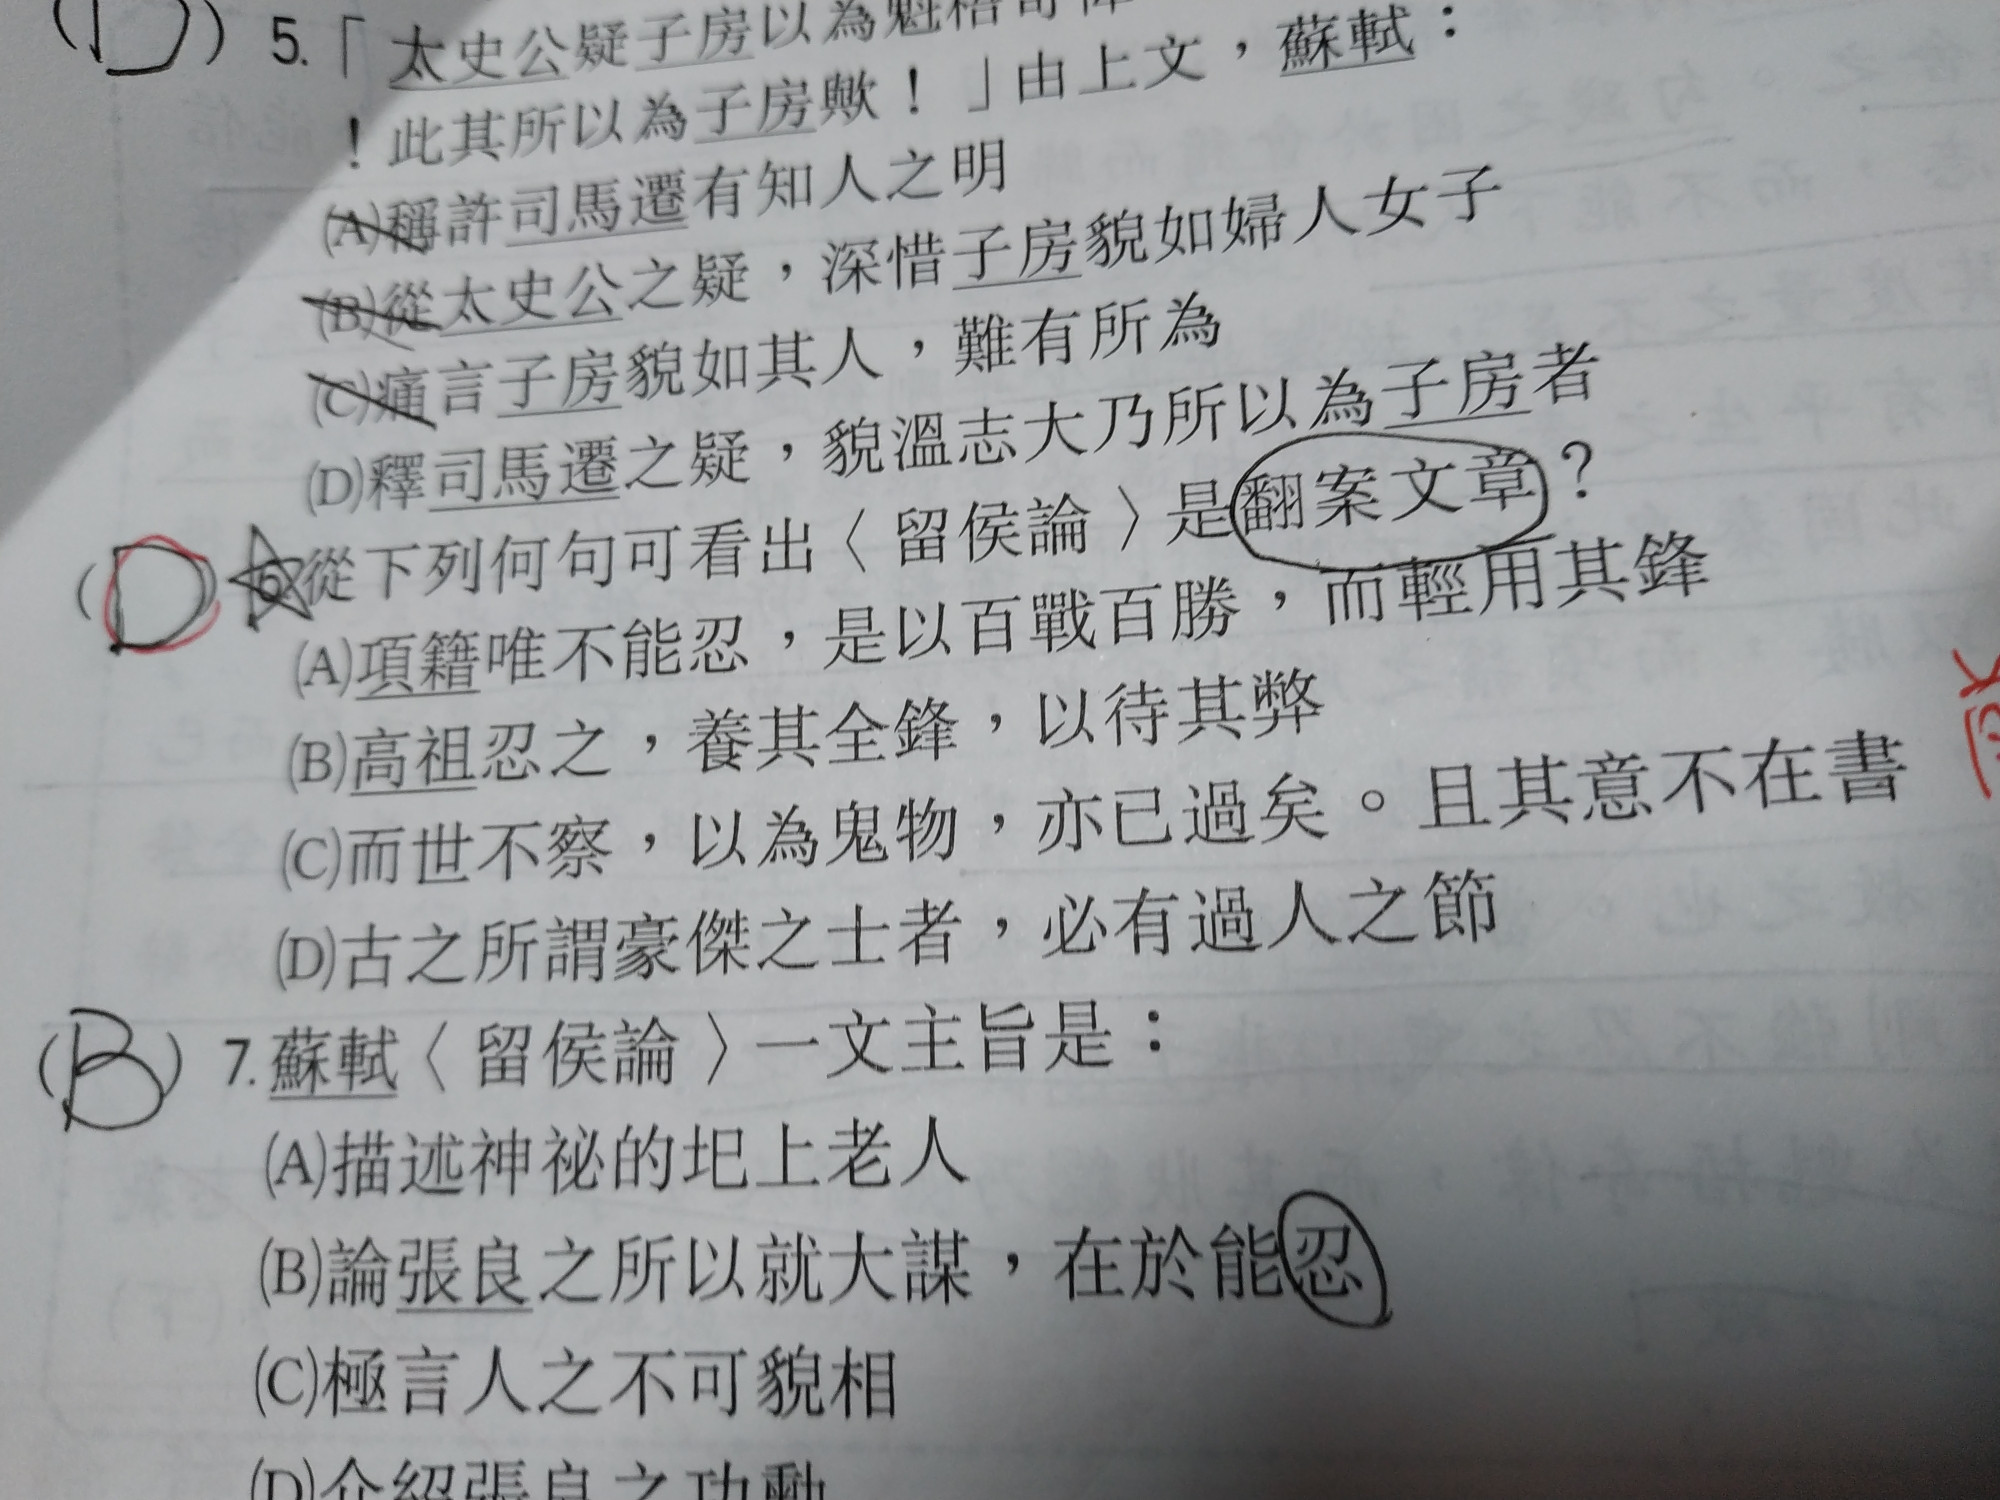 (D) 5.「太史公疑子房以為魁梧奇偉
！此其所以為子房歟！」由上文，蘇軾：
(A)稱許司馬遷有知人之明
(B)從太史公之疑，深惜子房貌如婦人女子
(C)痛言子房貌如其人，難有所為
(D)釋司馬遷之疑，貌溫志大乃所以為子房者
(D) 6.從下列何句可看出〈留侯論〉是翻案文章？
(A)項籍唯不能忍，是以百戰百勝，而輕用其鋒
(B)高祖忍之，養其全鋒，以待其弊
(C)而世不察，以為鬼物，亦已過矣。且其意不在書
(D)古之所謂豪傑之士者，必有過人之節
(B) 7.蘇軾〈留侯論〉一文主旨是：
(A)描述神祕的圯上老人
(B)論張良之所以就大謀，在於能忍
(C)極言人之不可貌相
(D)介紹張良之功勳